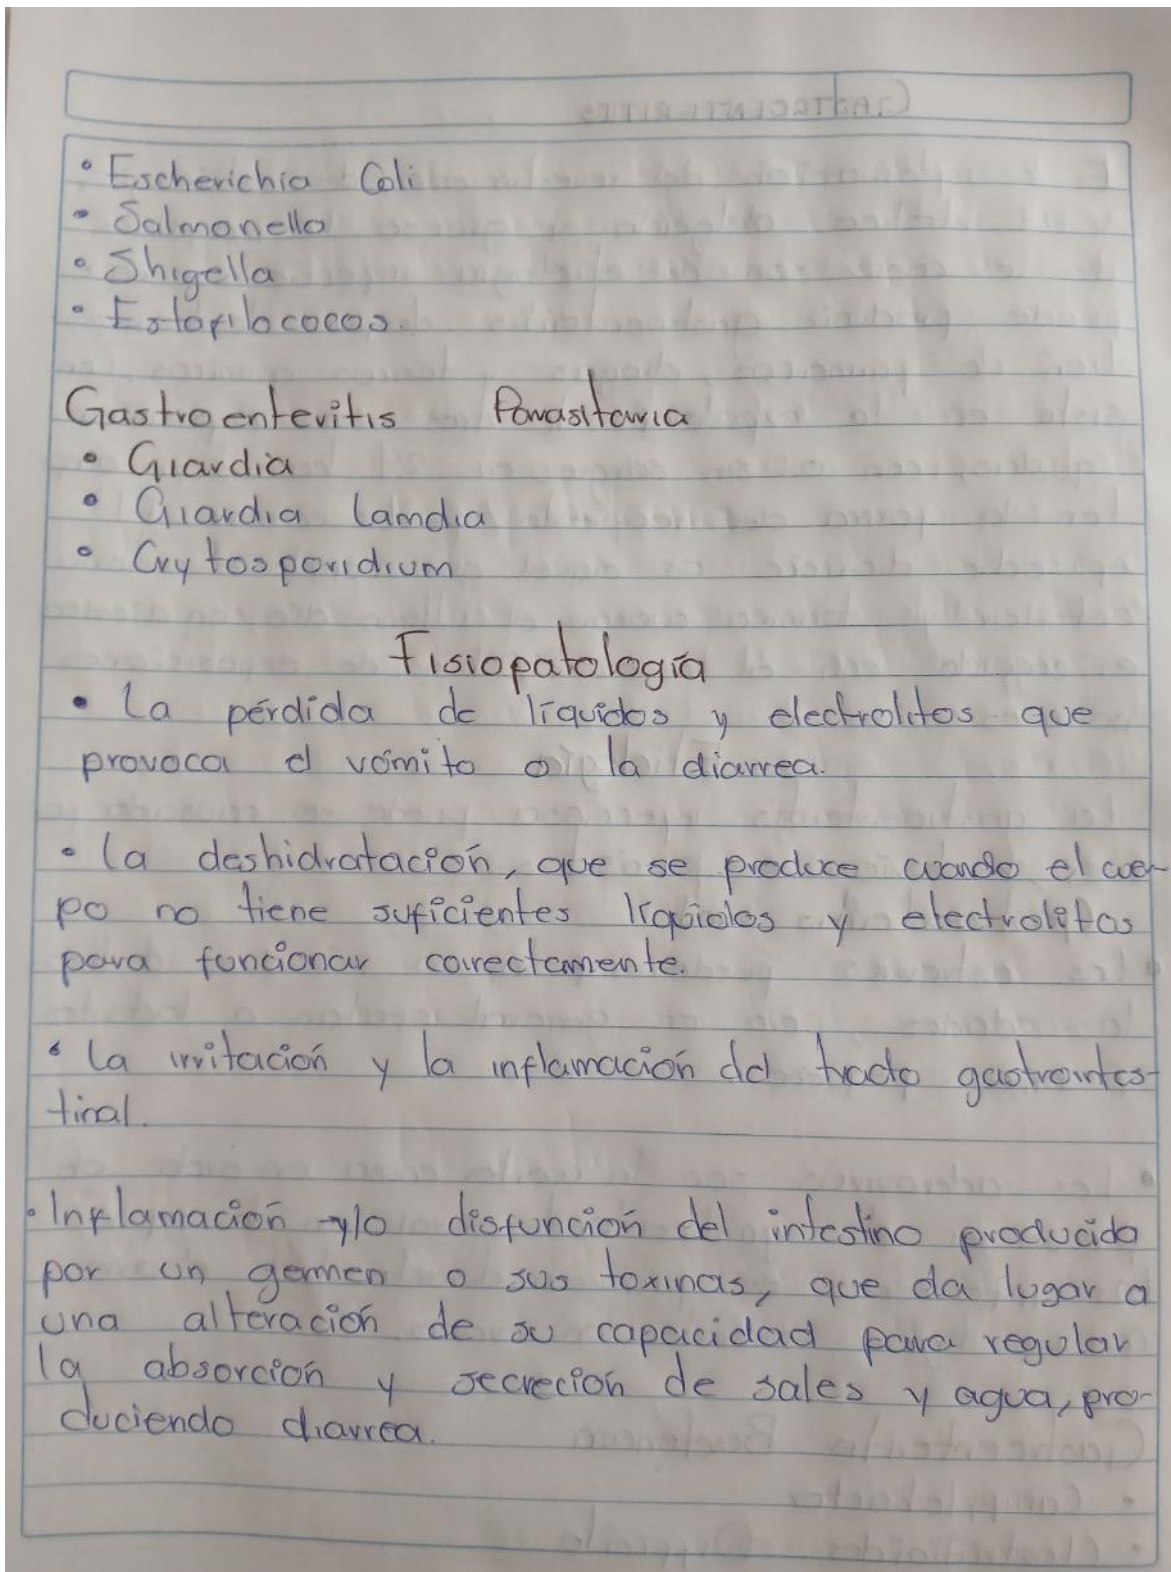 • Escherichia Coli
• Salmonella
• Shigella
• Estafilococos.
Gastroenteritis Parasitaria
• Giardia
• Giardia Lamdia
• Crytosporidium
Fisiopatología
• La pérdida de líquidos y electrolitos que
provoca el vómito o la diarrea.
• La deshidratación, que se produce cuando el cuer-
po no tiene suficientes líquidos y electrolitos
para funcionar correctamente.
• La irritación y la inflamación del tracto gastrointes-
tinal.
• Inflamación y/o disfunción del intestino producido
por un germen o sus toxinas, que da lugar a
una alteración de su capacidad para regular
la absorción y secreción de sales y agua, pro-
duciendo diarrea.